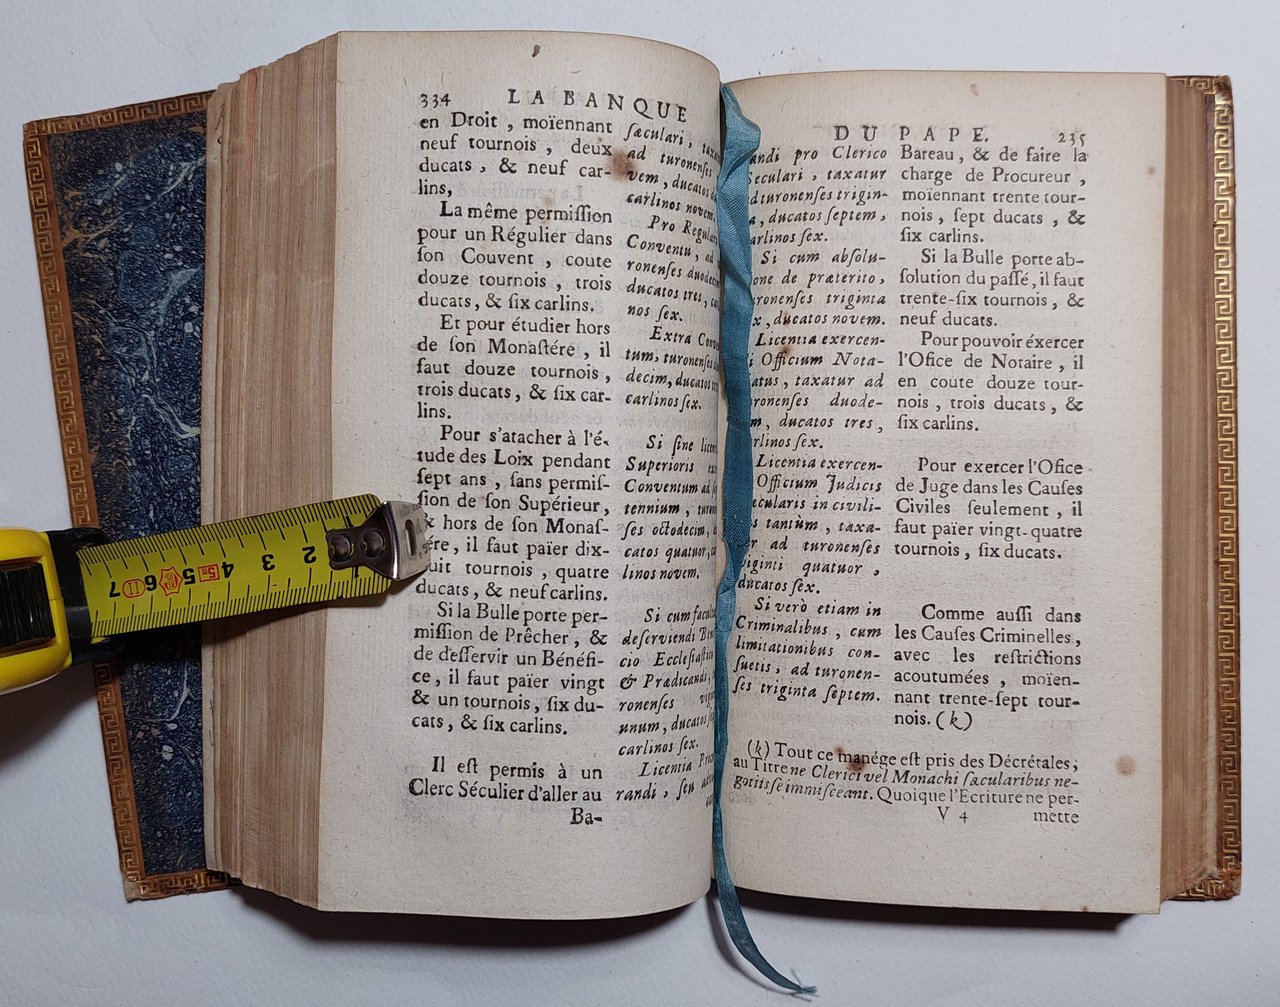 334 LA BANQUE
en Droit , moïennant
neuf tournois , deux
ducats , & neuf car-
lins,
La même permiſſion
pour un Régulier dans
ſon Couvent , coute
douze tournois , trois
ducats, & ſix carlins.
Et pour étudier hors
de ſon Monaſtére , il
faut douze tournois ,
trois ducats, & ſix car-
lins.
Pour s'atacher à l'é-
tude des Loix pendant
ſept ans , ſans permiſ-
ſion de ſon Supérieur,
hors de ſon Monaſ-
il faut païer dix-
tournois , quatre
ducats, & neuf carlins.
Si la Bulle porte per-
miſſion de Prêcher, &
de deſſervir un Bénéfi-
ce, il faut païer vingt
& un tournois, ſix du-
cats, & ſix carlins.
Il eſt permis à un
Clerc Séculier d'aller au
Ba-
ſæculari,
ad turonenſes
vem, ducatos
carlinos novem,
Pro
Conventu, ad
ronenſes
ducatos tres,
nos ſex.
Extra
tum, turonenſes
decim, ducatos
carlinos ſex.
Si ſine
Superioris
Conventum ad
tennium,
ſes octodecim,
catos quatuor,
linos novem.
Si cum
deſerviendi
cio
& Prædicandi,
ronenſes
unum, ducatos
carlinos ſex.
Licentia
randi, ſeu
DU PAPE. 235
pro Clerico
taxatur
trigin-
ducatos ſeptem,
ſex.
Si cum abſolu-
de præterito,
triginta
ducatos novem.
Licentia exercen-
Officium Nota-
taxatur ad
duode-
ducatos tres,
ſex.
Licentia exercen-
Officium Judicis
in civili-
tantum, taxa-
ad turonenſes
quatuor,
ducatos ſex.
Si verò etiam in
Criminalibus, cum
limitationibus con-
ſuetis, ad turonen-
ſes triginta ſeptem.
Bareau, & de faire la
charge de Procureur,
moïennant trente tour-
nois, ſept ducats, &
ſix carlins.
Si la Bulle porte ab-
ſolution du paſſé, il faut
trente-ſix tournois, &
neuf ducats.
Pour pouvoir éxercer
l'Ofice de Notaire, il
en coute douze tour-
nois, trois ducats, &
ſix carlins.
Pour exercer l'Ofice
de Juge dans les Cauſes
Civiles ſeulement, il
faut païer vingt-quatre
tournois, ſix ducats.
Comme auſſi dans
les Cauſes Criminelles,
avec les reſtrictions
acoutumées, moïen-
nant trente-ſept tour-
nois. (k)
(k) Tout ce manége eſt pris des Décrétales,
au Titre ne Clerici vel Monachi ſæcularibus ne-
gotiis ſe immiſceant. Quoique l'Ecriture ne per-
V 4 mette
7 6 5 4 3 2 1